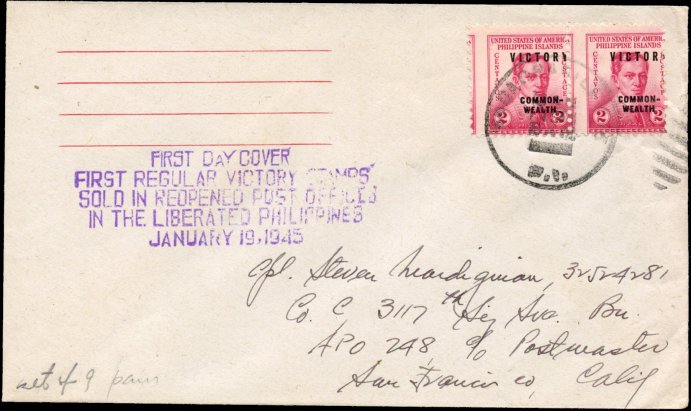 UNITED STATES OF AMERIC
PHILIPPINE ISLANDS
CENTAVOS
POSTAGE
VICTORY
COMMON-
WEALTH
2 2
UNITED STATES OF AMERI
PHILIPPINE ISLANDS
CENTAVOS
POSTAGE
VICTOR
COMMON-
WEALTH
2 2
P.I.
FIRST DAY COVER
FIRST REGULAR VICTORY STAMPS
SOLD IN REOPENED POST OFFICES
IN THE LIBERATED PHILIPPINES
JANUARY 19, 1945
Cpl. Steven 32524281
Co. C 3117th Sig Sva. Bn.
APO 248, c/o Postmaster
San Francisco, Calif
set of 9 pairs